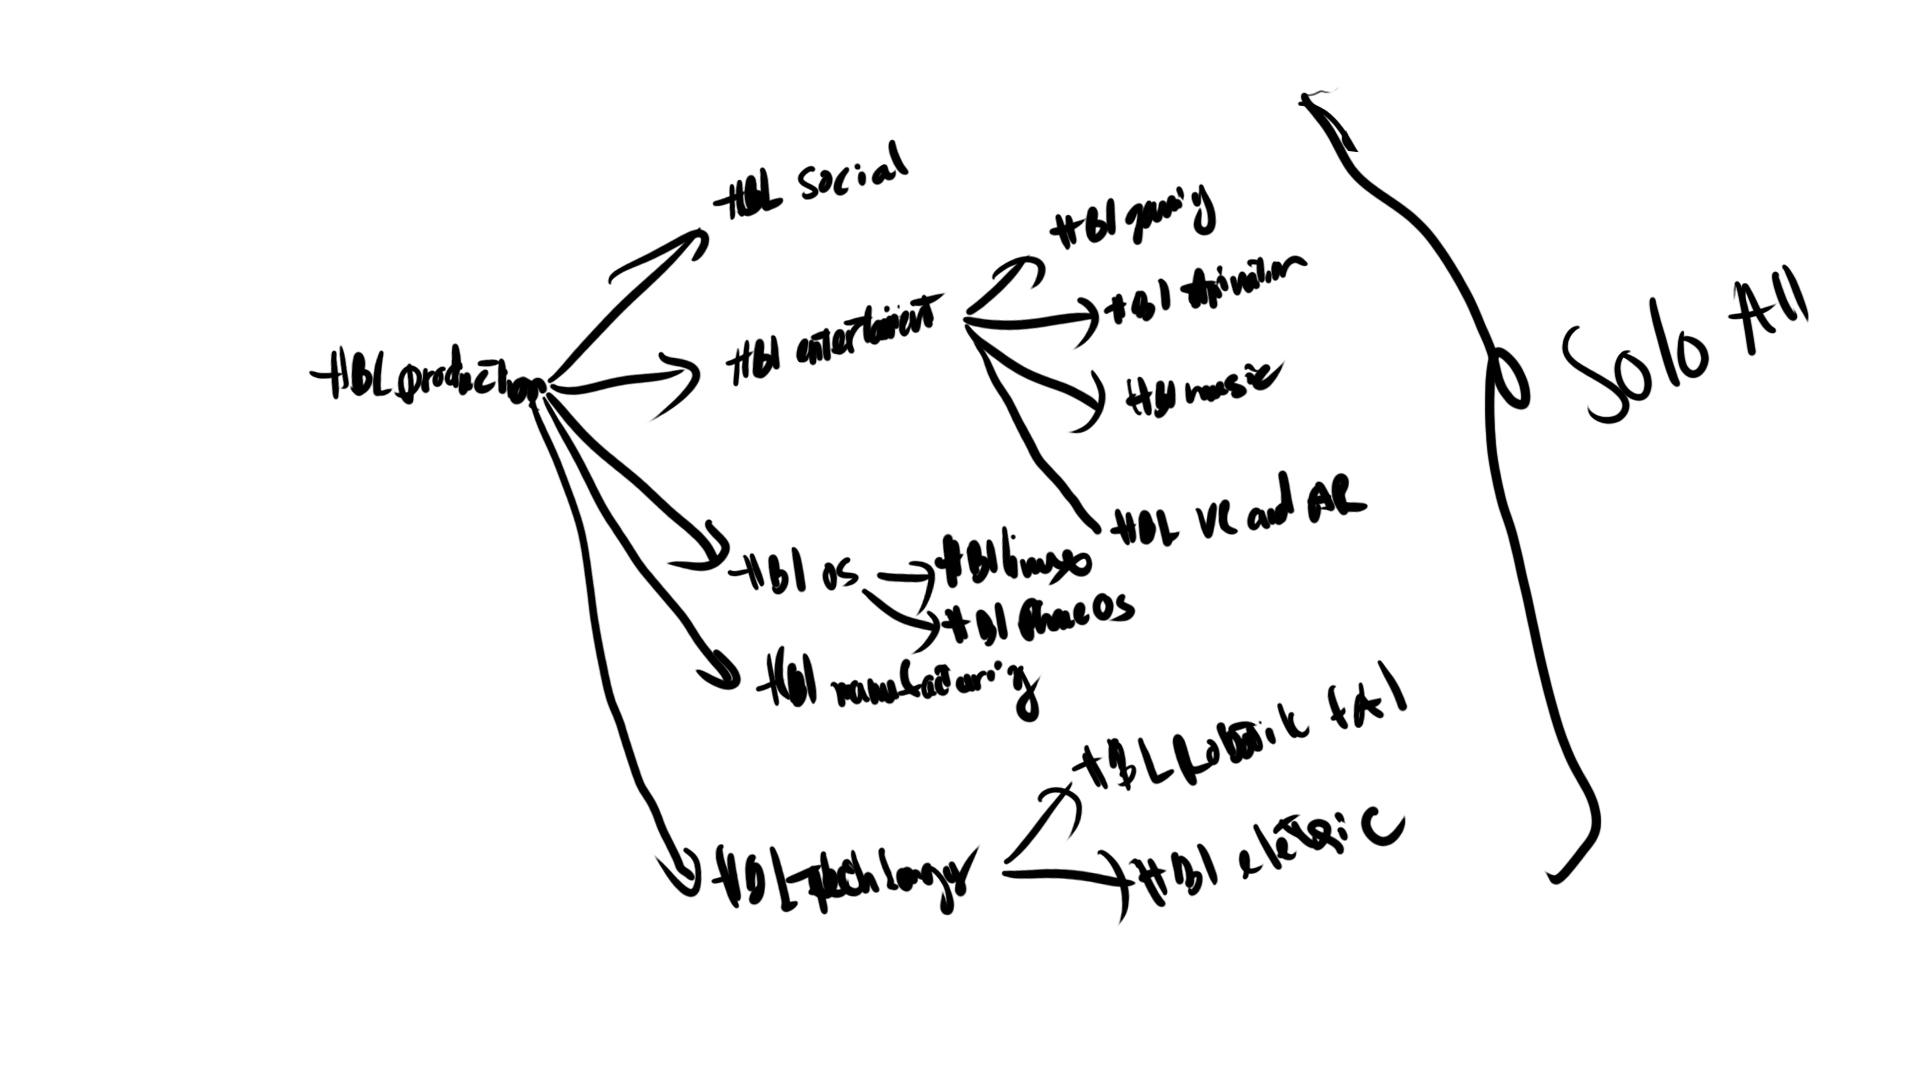 HBL social
HBL production
HBl entertaiment
HBl gaming
HBl Animation
HBl music
HBL VR and AR
HBl OS
HBl linuxs
HBl Phone OS
HBl manufacturing
HBL
HBL Robotik &AI
HBl eletric
Solo All